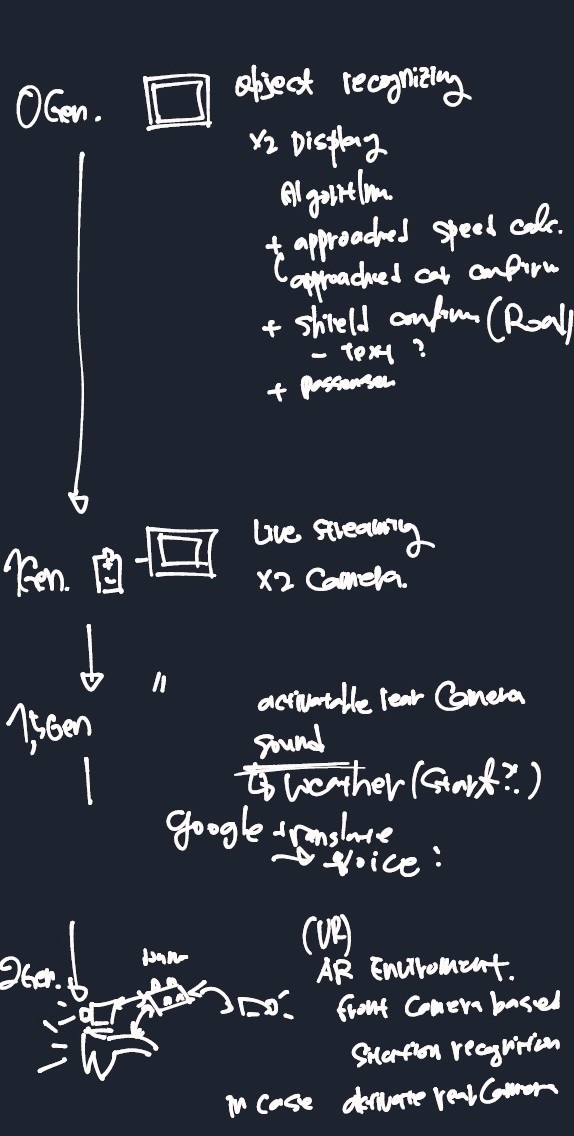 0Gen.
object recognizing
x2 Display
Algorithm.
+ approached speed calc.
approached car confirm
+ shield confirm (Road)
- Text ?
+ passenger
1Gen.
Live streaming
x2 Camera.
"
1.5Gen
activatable rear Camera
sound
↳ weather (Start?)
google translate
→ voice ?
2Gen.
(VR)
AR Enviroment.
front Camera based
recognition
in case activate rear Camera